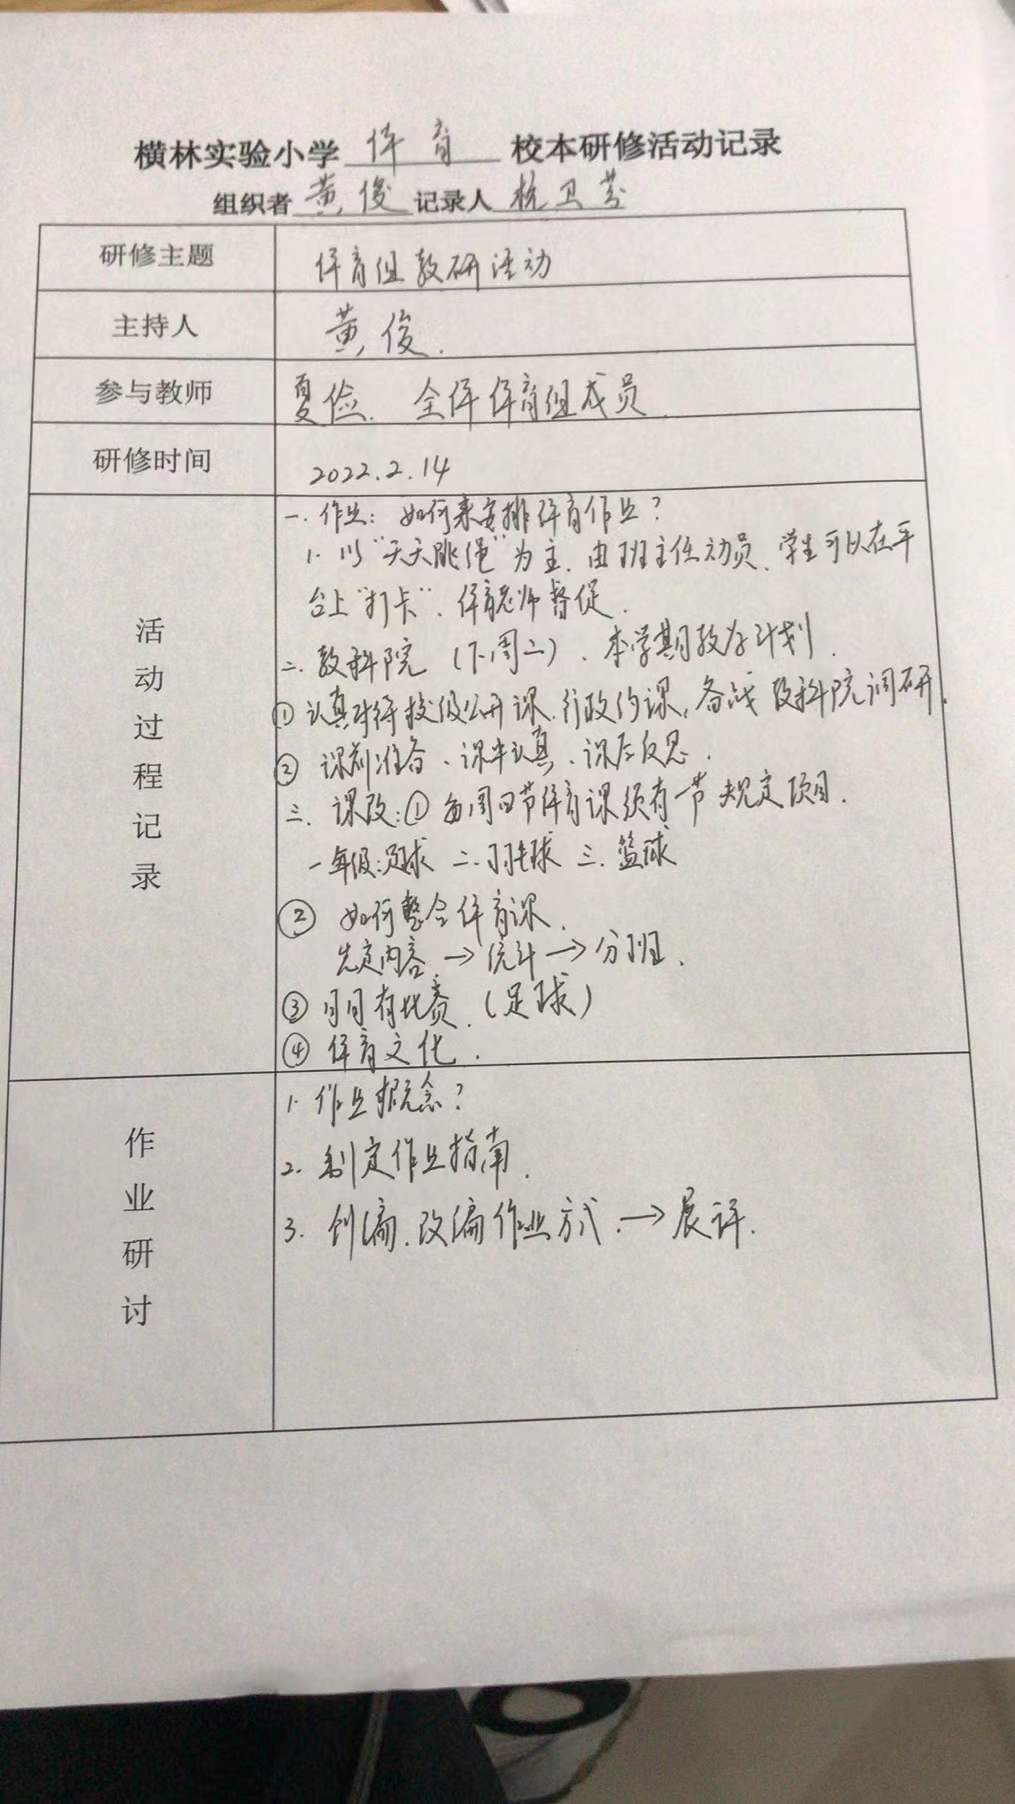 横林实验小学 体育 校本研修活动记录
组织者 黄俊 记录人 杭卫芬
研修主题 体育组教研活动
主持人 黄俊.
参与教师 夏俭. 全体体育组成员.
研修时间 2022.2.14
活动过程记录
一. 作业: 如何来安排体育作业?
1. 以“天天跳绳”为主. 由班主任动员、学生可以在平
台上“打卡”. 体育老师督促.
二. 教科院 (下周二)、本学期教学计划.
① 认真对待校级公开课. 行政约课, 备战教科院调研.
② 课前准备、课中认真、课后反思.
三. 课改: ① 每周四节体育课须有一节规定项目.
一年级: 足球 二. 羽毛球 三. 篮球
② 如何整合体育课.
先定内容 → 统计 → 分班.
③ 月月有比赛. (足球)
④ 体育文化.
作业研讨
1. 作业概念?
2. 制定作业指南.
3. 创编. 改编作业方式. → 展评.